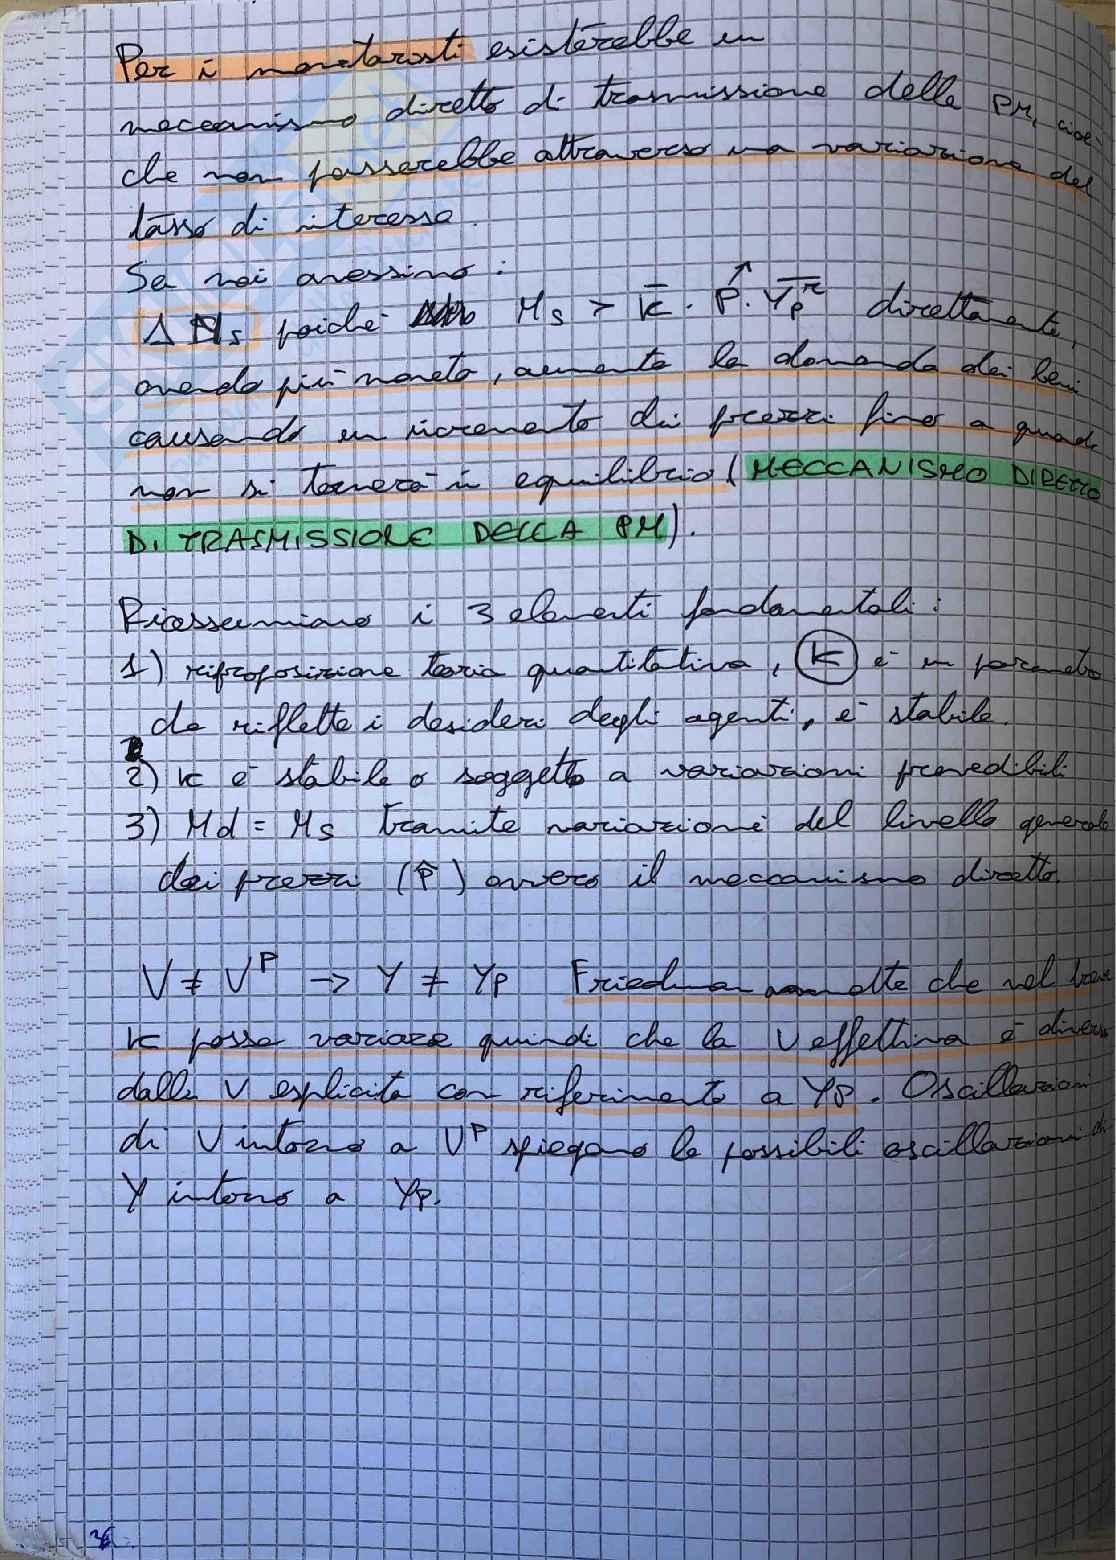 Per i monetaristi esisterebbe un
meccanismo diretto di trasmissione della PM, cioè
che non passerebbe attraverso una variazione del
tasso di interesse.
Se noi avessimo:
Δ Ms poiché Ms > k̄ · P↑ · Ȳp^r direttamente,
avendo più moneta, aumenta la domanda dei beni
causando un incremento dei prezzi fino a quando
non si tornerà in equilibrio (MECCANISMO DIRETTO
DI TRASMISSIONE DELLA PM).
Riassumiamo i 3 elementi fondamentali:
1) riproposizione teoria quantitativa, k è un parametro
che riflette i desideri degli agenti, è stabile.
2) k è stabile o soggetto a variazioni prevedibili
3) Md = Ms tramite variazione del livello generale
dei prezzi (P̂) ovvero il meccanismo diretto.
V ≠ V^P → Y ≠ Yp Friedman nel breve
k possa variare quindi che la V effettiva è diversa
dalla V esplicita con riferimento a Yp. Oscillazioni
di V intorno a V^P spiegano le possibili oscillazioni di
Y intorno a Yp.